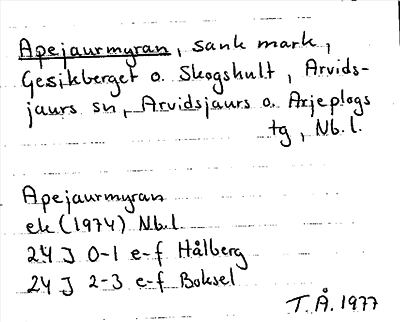 Apejaurmyran, sank mark,
Gesikberget o. Skogshult, Arvids-
jaurs sn, Arvidsjaurs o. Arjeplogs
tg, Nb.l.
Apejaurmyran
ek (1974) Nb.l.
24 J 0-1 e-f Hålberg
24 J 2-3 e-f Boksel
T.Å. 1977